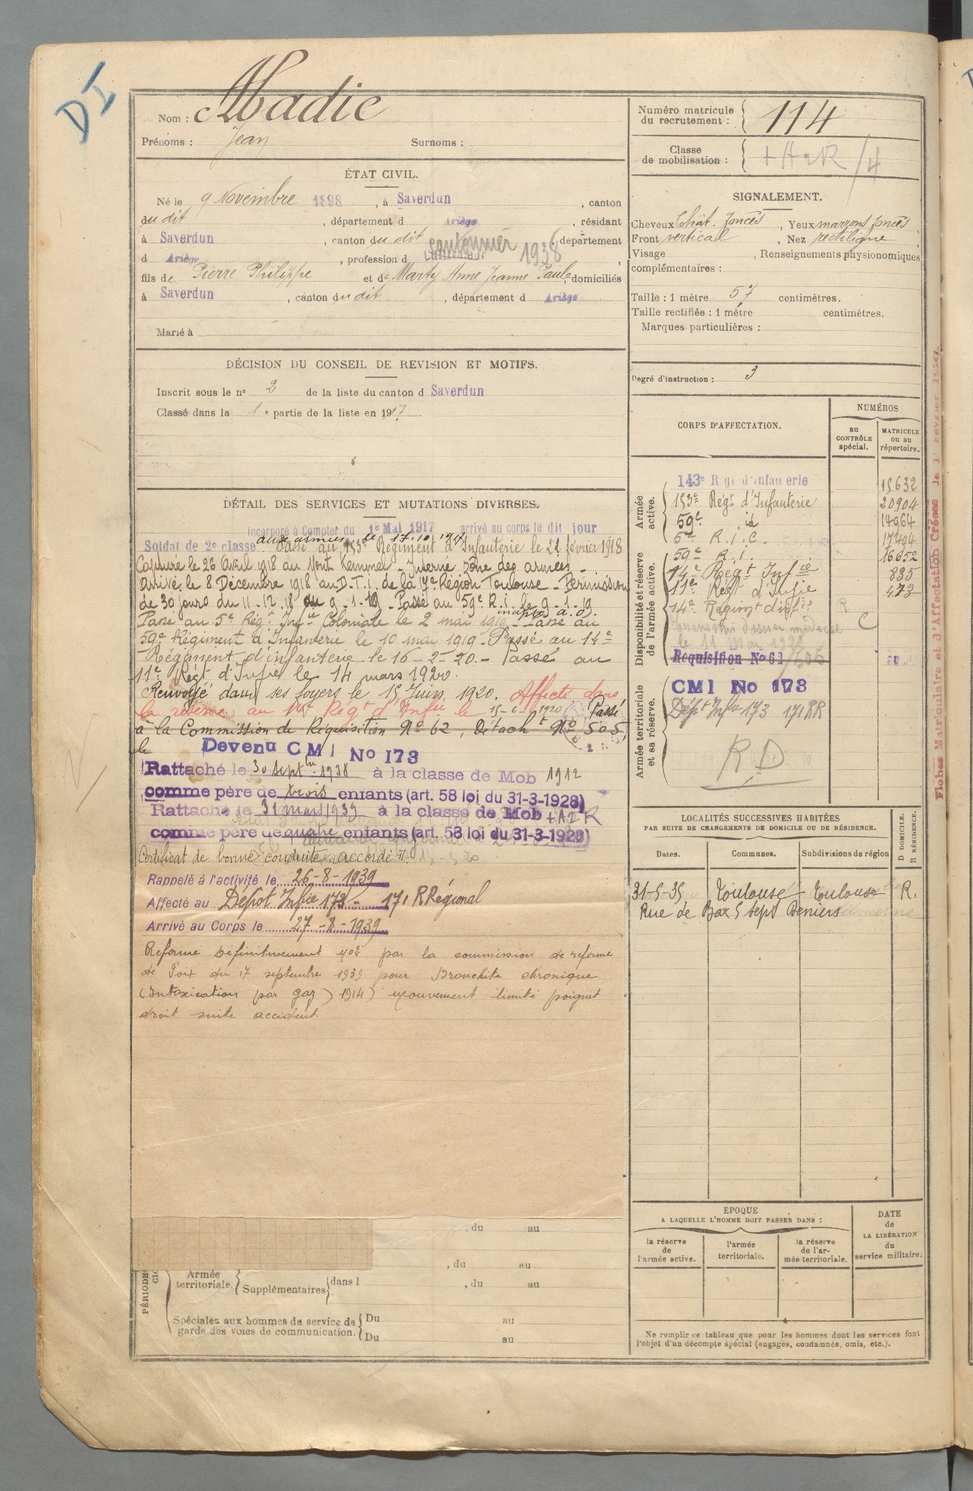 DI
Nom : Madic
Prénoms : Jean Surnoms :
ÉTAT CIVIL.
Né le 9 Novembre 1898, à Saverdun, canton
du dit, département d Ariège, résidant
à Saverdun, canton du dit cantonnier 1938 département
d Ariège, profession d
fils de Pierre Philippe et de Marty Anne Jeanne Paule, domiciliés
à Saverdun, canton du dit, département d Ariège
Marié à
DÉCISION DU CONSEIL DE REVISION ET MOTIFS.
Inscrit sous le n° 2 de la liste du canton d Saverdun
Classé dans la 1e partie de la liste en 1917
DÉTAIL DES SERVICES ET MUTATIONS DIVERSES.
Incorporé à Compter du 1e Mai 1917 arrivé au corps le dit jour
Soldat de 2e classe aux armées le 17.10.1917
Passé au 153e Régiment d'Infanterie le 22 février 1918
Capturé le 26 Avril 1918 au Mont Kemmel - Interné zone des armées -
Arrivé le 8 Décembre 1918 au D.T.I. de la 17e Région Toulouse - Permission
de 30 jours du 11-12-18 au 9-1-19 - Passé au 59e R.I. le 9-1-19
Passé au 5e Rég. Infie Coloniale le 2 mai 1919 - Passé au
59e Régiment d'Infanterie le 10 mai 1919 - Passé au 14e
Régiment d'infanterie le 16-2-20 - Passé au
11e Régt d'Infie le 14 mars 1920
Renvoyé dans ses foyers le 15 Juin 1920. Affecté dans
la réserve au 14e Régt d'Infie le 15-6-1920 Passé
à la Commission de Réquisition N° 62, Détacht N° 505
le
Devenu CMI No 173
Rattaché le 30 septbre 1938 à la classe de Mob 1912
comme père de trois enfants (art. 58 loi du 31-3-1928)
Rattaché le 31 mars 1939 à la classe de Mob +A2R
comme père de quatre enfants (art. 58 loi du 31-3-1928)
Certificat de bonne conduite accordé
Rappelé à l'activité le 26-8-1939
Affecté au Dépôt Infie 173 - 171 R Régional
Arrivé au Corps le 27-8-1939
Réformé définitivement n°2 par la commission de réforme
de Foix du 17 septembre 1939 pour Bronchite chronique
(Intoxication par gaz) 1914) mouvement limité poignet
droit suite accident
, du au
, du au
Armée territoriale. Supplémentaires dans l , du au
Spéciales aux hommes du service de garde des voies de communication. Du au
Du au
Numéro matricule du recrutement : 114
Classe de mobilisation : +A2R/4
SIGNALEMENT.
Cheveux chât. foncés, Yeux marrons foncés
Front vertical, Nez rectiligne
Visage , Renseignements physionomiques
complémentaires :
Taille : 1 mètre 57 centimètres.
Taille rectifiée : 1 mètre centimètres.
Marques particulières :
Degré d'instruction : 3
CORPS D'AFFECTATION.
NUMÉROS
AU CONTRÔLE spécial.
MATRICULE ou au répertoire.
Armée active.
143e Rgt d'Infanterie 15632
153e Régt d'Infanterie 20904
59e id 14964
5e R.I.C. 17494
Disponibilité et réserve de l'armée active.
59e R.I. 16652
14e Régt Infie 835
11e Régt d'Infie 473
14e Régiment d'infie R
C
Réquisition No 62
Armée territoriale et sa réserve.
CMI No 173
Dépôt Infie 173 171 RR
RD
LOCALITÉS SUCCESSIVES HABITÉES
PAR SUITE DE CHANGEMENTS DE DOMICILE OU DE RÉSIDENCE.
D DOMICILE. R RÉSIDENCE.
Dates. Communes. Subdivisions de région
31-5-35 Toulouse - Toulouse R.
Rue de Bax 5 Sept Deniers
EPOQUE
A LAQUELLE L'HOMME DOIT PASSER DANS :
la réserve de l'armée active.
l'armée territoriale.
la réserve de l'armée territoriale.
DATE DE LA LIBÉRATION du service militaire.
Ne remplir ce tableau que pour les hommes dont les services font
l'objet d'un décompte spécial (engagés, condamnés, omis, etc.).